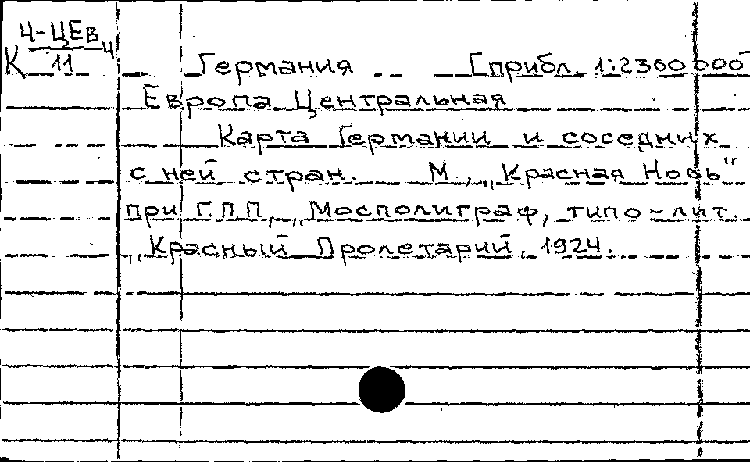 Ч-ЦЕв
К 11 ч Германия [прибл. 1:2300000
Европа Центральная
Карта Германии и соседних
с ней стран. М., „Красная Новь"
при Г.П.П., „Мосполиграф, типо-лит.
„Красный Пролетарий, 1924.